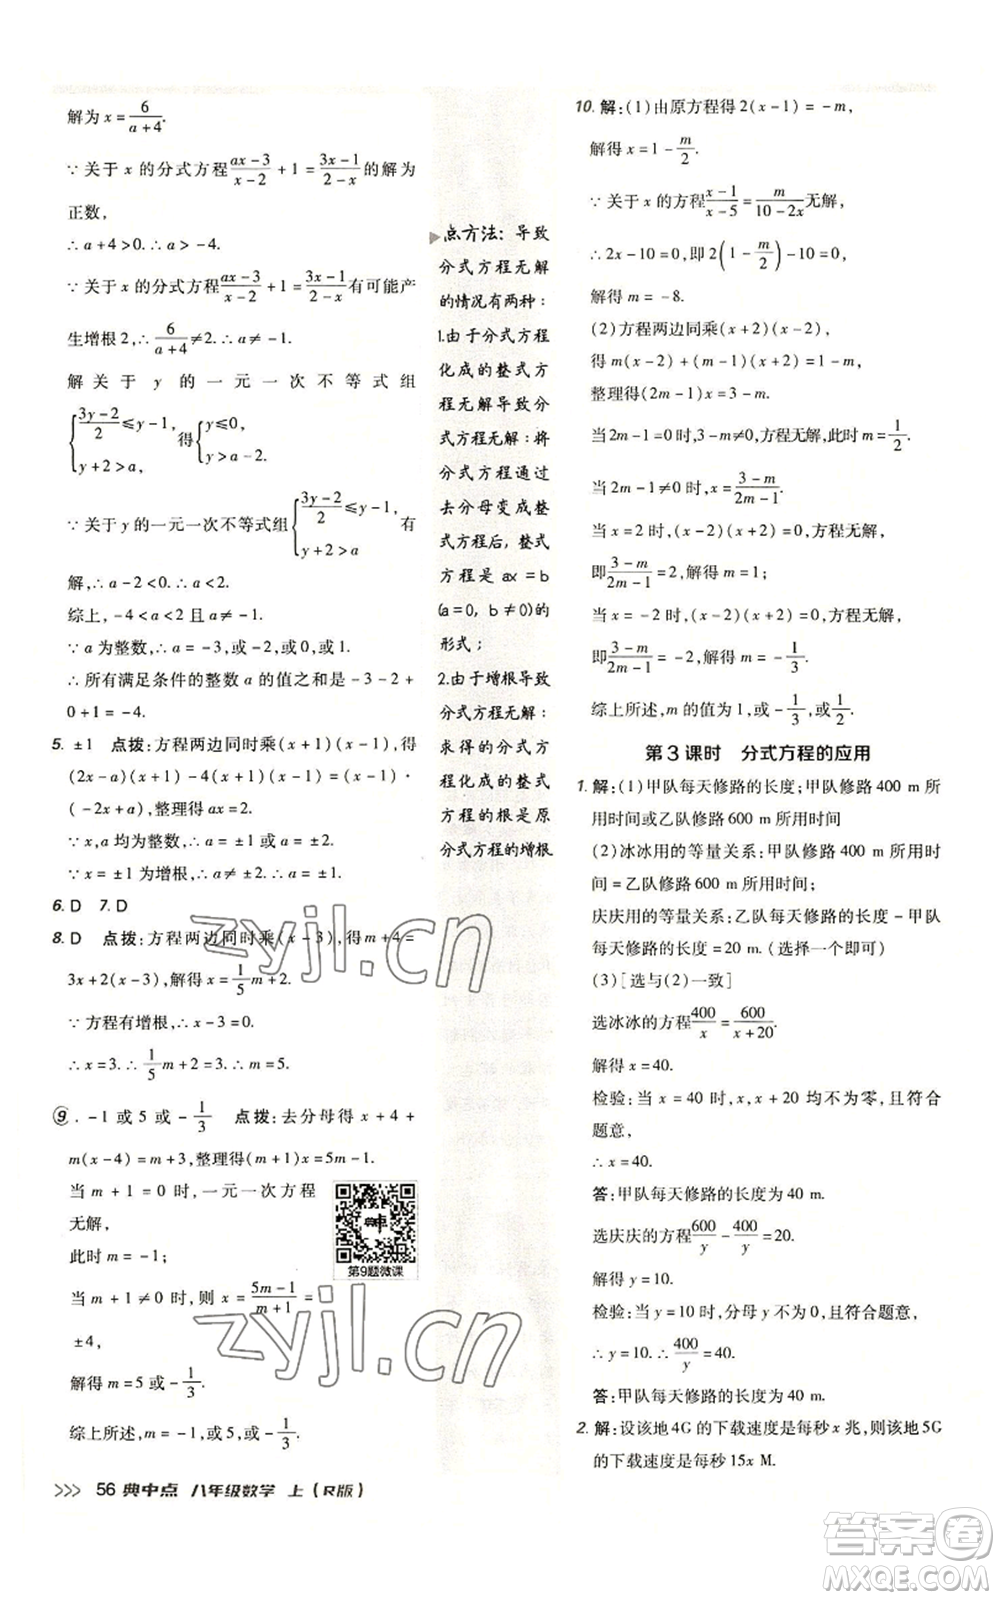 解为x=6/(a+4).
∵关于x的分式方程(ax-3)/(x-2)+1=(3x-1)/(2-x)的解为
正数,
∴a+4>0.∴a>-4.
∵关于x的分式方程(ax-3)/(x-2)+1=(3x-1)/(2-x)有可能产
生增根2,∴6/(a+4)≠2.∴a≠-1.
解关于y的一元一次不等式组
{(3y-2)/2≤y-1, y+2>a, 得{y≤0, y>a-2.
∵关于y的一元一次不等式组{(3y-2)/2≤y-1, y+2>a 有
解,∴a-2<0.∴a<2.
综上,-4<a<2且a≠-1.
∵a为整数,∴a=-3,或-2,或0,或1.
∴所有满足条件的整数a的值之和是-3-2+
0+1=-4.
5. ±1 点拨:方程两边同时乘(x+1)(x-1),得
(2x-a)(x-1)-(x+1)(x-1)=(x-1)·
(-2x+a),整理得ax=2.
∵x,a均为整数,∴a=±1或a=±2.
∵x=±1为增根,∴a≠±2.∴a=±1.
6. D 7. D
8. D 点拨:方程两边同时乘(x-3),得m+4=
3x+2(x-3),解得x=1/5m+2.
∵方程有增根,∴x-3=0.
∴x=3.∴1/5m+2=3.∴m=5.
9. -1或5或-1/3 点拨:去分母得x+4+
m(x-4)=m+3,整理得(m+1)x=5m-1.
当m+1=0时,一元一次方程
无解,
此时m=-1;
当m+1≠0时,则x=(5m-1)/(m+1)=
±4,
解得m=5或-1/3.
综上所述,m=-1或5或-1/3.
第9题微课
>>> 56 典中点 八年级数学 上(R版)
点方法:导致
分式方程无解
的情况有两种:
1.由于分式方程
化成的整式方
程无解导致分
式方程无解:将
分式方程通过
去分母变成整
式方程后,整式
方程是ax=b
(a=0,b≠0)的
形式;
2.由于增根导致
分式方程无解:
求得的分式方
程化成的整式
方程的根是原
分式方程的增根
10. 解:(1)由原方程得2(x-1)=-m,
解得x=1-m/2.
∵关于x的方程(x-1)/(x-5)=m/(10-2x)无解,
∴2x-10=0,即2(1-m/2)-10=0,
解得m=-8.
(2)方程两边同乘(x+2)(x-2),
得m(x-2)+(m-1)(x+2)=x+1,
整理得(2m-1)x=3-m.
当2m-1=0时,3-m≠0,方程无解,此时m=1/2.
当2m-1≠0时,x=(3-m)/(2m-1).
当x=2时,(x-2)(x+2)=0,方程无解,
即(3-m)/(2m-1)=2,解得m=1;
当x=-2时,(x-2)(x+2)=0,方程无解,
即(3-m)/(2m-1)=-2,解得m=-1/3.
综上所述,m的值为1,或-1/3,或1/2.
第3课时 分式方程的应用
1. 解:(1)甲队每天修路的长度;甲队修路400 m所
用时间或乙队修路600 m所用时间
(2)冰冰用的等量关系:甲队修路400 m所用时
间=乙队修路600 m所用时间;
庆庆用的等量关系:乙队每天修路的长度-甲队
每天修路的长度=20 m.(选择一个即可)
(3)[选与(2)一致]
选冰冰的方程400/x=600/(x+20).
解得x=40.
检验:当x=40时,x,x+20均不为零,且符合
题意,
∴x=40.
答:甲队每天修路的长度为40 m.
选庆庆的方程600/y-400/y=20,
解得y=10.
检验:当y=10时,分母y不为0,且符合题意,
∴y=10.∴400/y=40.
答:甲队每天修路的长度为40 m.
2. 解:设该地4G的下载速度是每秒x兆,则该地5G
的下载速度是每秒15x M.
zyjl.cn
zyjl.cn
答案圈
MXQE.COM